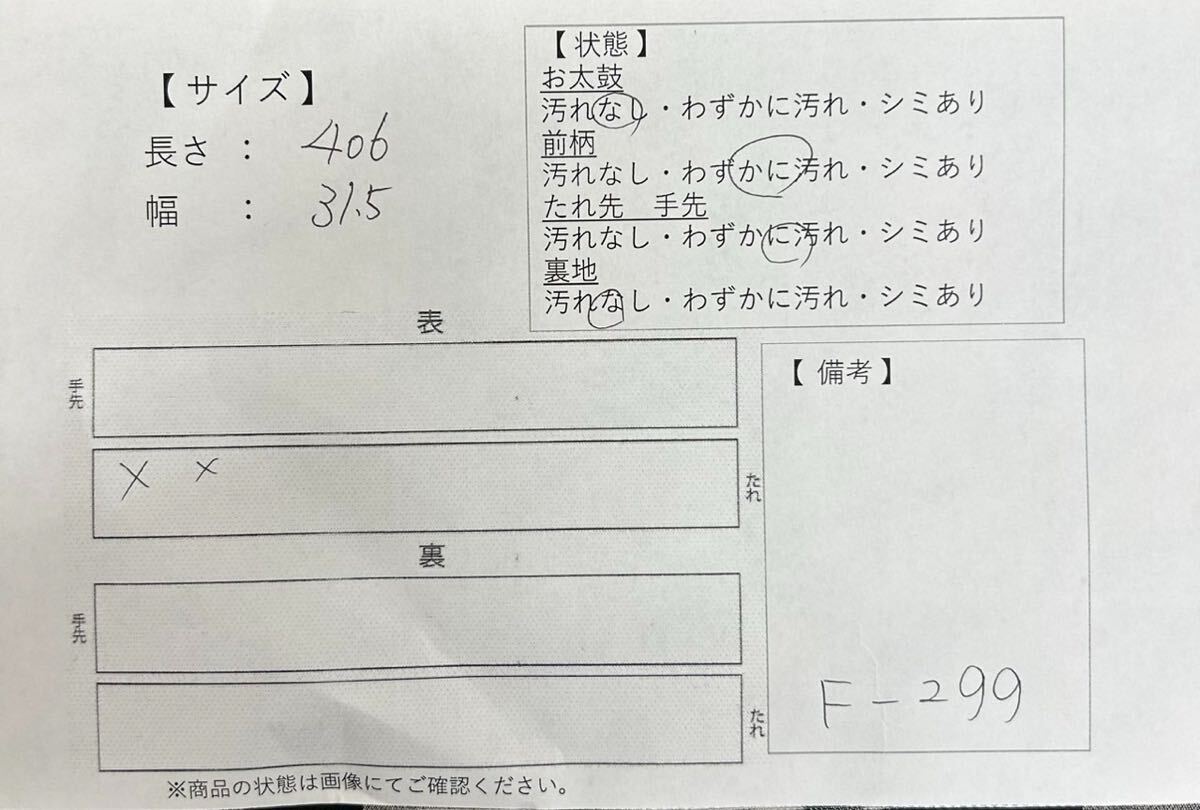 【サイズ】
長さ ： 406
幅 ： 31.5
【状態】
お太鼓
汚れなし・わずかに汚れ・シミあり
前柄
汚れなし・わずかに汚れ・シミあり
たれ先 手先
汚れなし・わずかに汚れ・シミあり
裏地
汚れなし・わずかに汚れ・シミあり
表
手先
× ×
たれ
裏
手先
たれ
【備考】
F-299
※商品の状態は画像にてご確認ください。